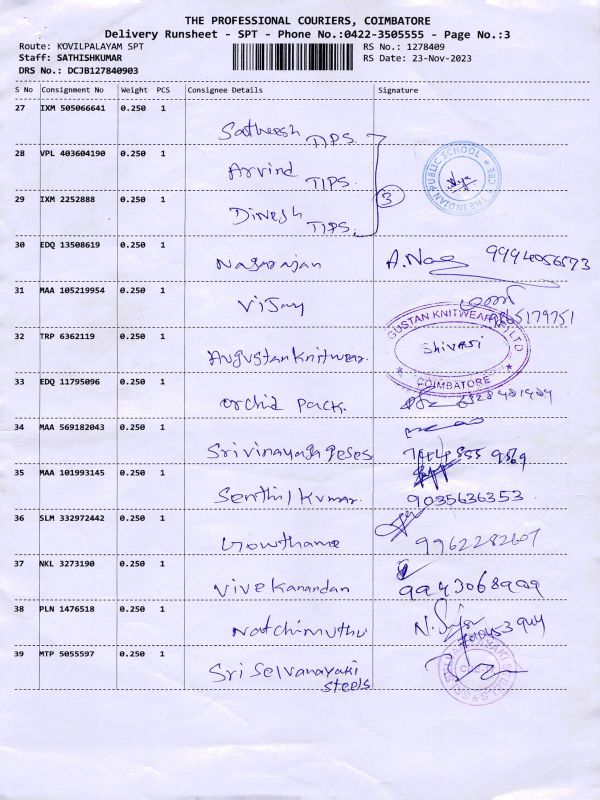 THE PROFESSIONAL COURIERS, COIMBATORE
Delivery Runsheet - SPT - Phone No.:0422-3505555 - Page No.:3
Route: KOVILPALAYAM SPT RS No.: 1278409
Staff: SATHISHKUMAR RS Date: 23-Nov-2023
DRS No.: DCJB127840903
S No Consignment No Weight PCS Consignee Details Signature
27 IXM 505066641 0.250 1
Satheesh TIPS
28 VPL 403604190 0.250 1
Arvind TIPS
29 IXM 2252888 0.250 1
Dinesh TIPS 3
THE INDIAN PUBLIC SCHOOL CBE
30 EDQ 13508619 0.250 1
Nagarajan A. Nag 9994056573
31 MAA 105219954 0.250 1
Vijay 9865179751
32 TRP 6362119 0.250 1
Augustan Knitwear.
GUSTAN KNITWEAR LTD
Shivani
COIMBATORE
33 EDQ 11795096 0.250 1
Orchid Pack.
34 MAA 569182043 0.250 1
Srivinayaga
35 MAA 101993145 0.250 1
Senthil Kumar 9035636353
36 SLM 332972442 0.250 1
Gowthama 9962282607
37 NKL 3273190 0.250 1
Vivekanandan 9943068909
38 PLN 1476518 0.250 1
Natchimuthu
39 MTP 5055597 0.250 1
Sri Selvanayaki
steels